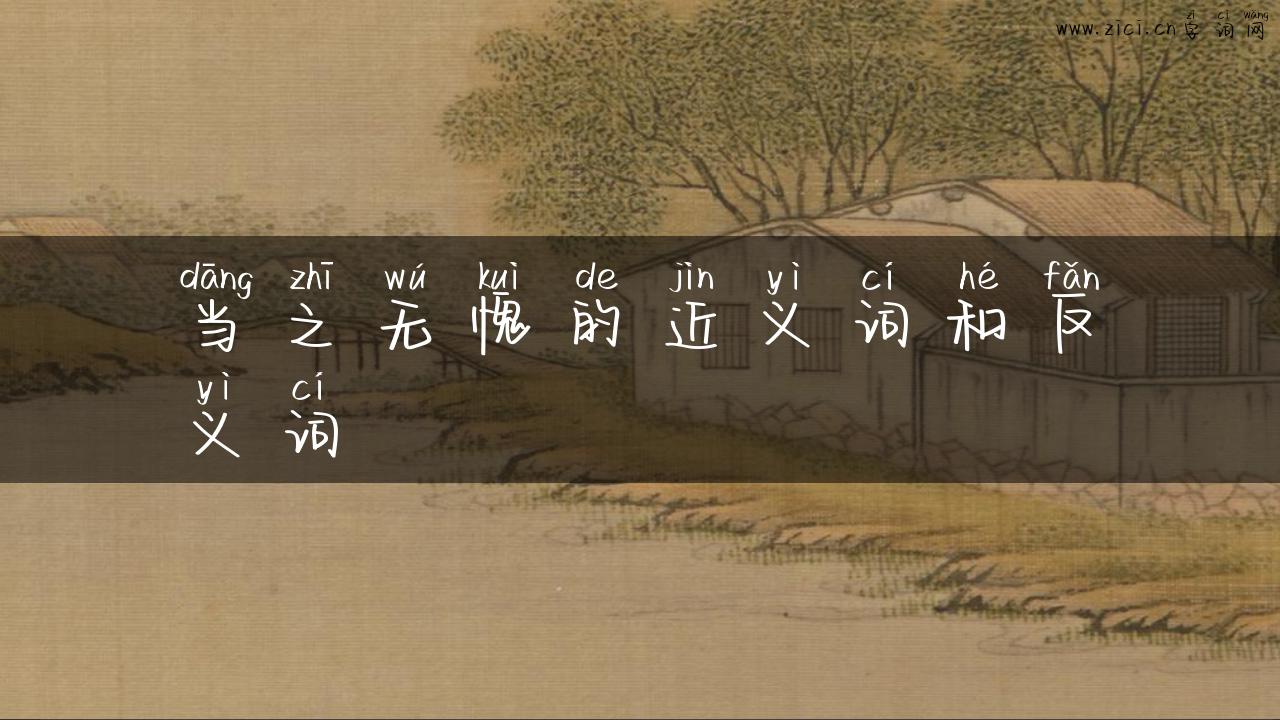 zì cí wǎng
www.zici.cn 字词网
dāng zhī wú kuì de jìn yì cí hé fǎn
当之无愧的近义词和反
yì cí
义词